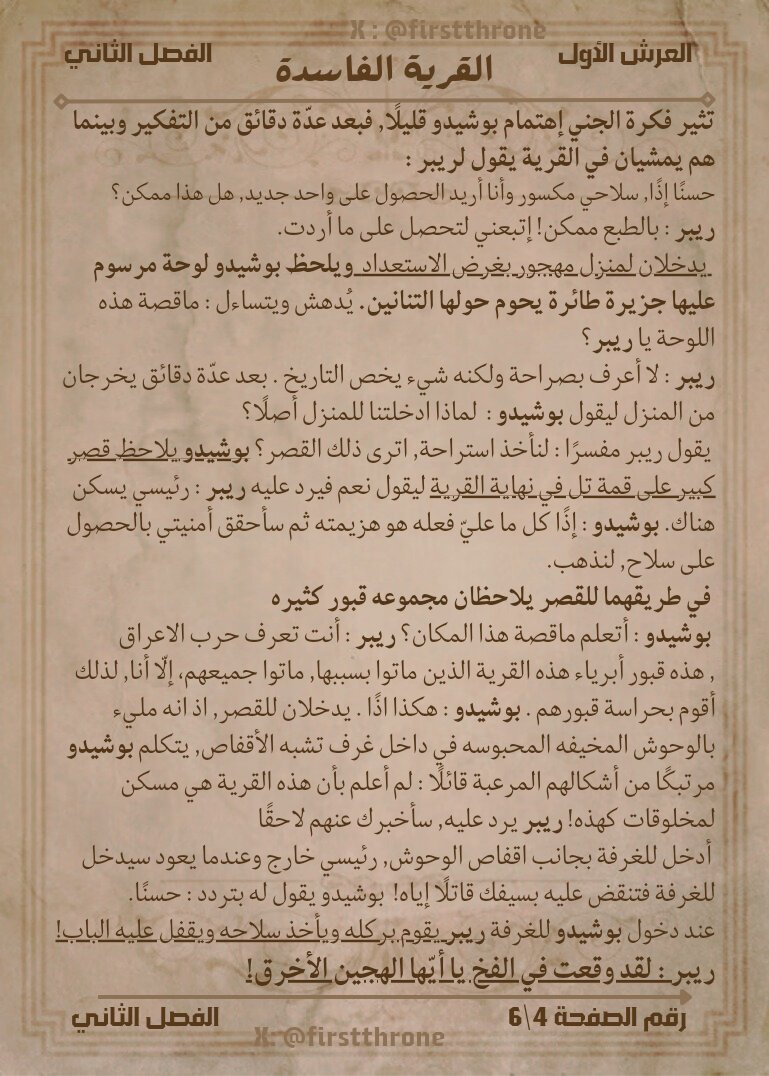 X : @firstthrone
العرش الأول
الفصل الثاني
القرية الفاسدة
تثير فكرة الجني إهتمام بوشيدو قليلًا, فبعد عدّة دقائق من التفكير وبينما
هم يمشيان في القرية يقول لريبر :
حسنًا إذًا, سلاحي مكسور وأنا أريد الحصول على واحد جديد, هل هذا ممكن؟
ريبر : بالطبع ممكن! إتبعني لتحصل على ما أردت.
يدخلان لمنزل مهجور بغرض الاستعداد ويلحظ بوشيدو لوحة مرسوم
عليها جزيرة طائرة يحوم حولها التنانين. يُدهش ويتساءل : ماقصة هذه
اللوحة يا ريبر؟
ريبر : لا أعرف بصراحة ولكنه شيء يخص التاريخ . بعد عدّة دقائق يخرجان
من المنزل ليقول بوشيدو : لماذا ادخلتنا للمنزل أصلًا؟
يقول ريبر مفسرًا : لنأخذ استراحة, اترى ذلك القصر؟ بوشيدو يلاحظ قصر
كبير على قمة تل في نهاية القرية ليقول نعم فيرد عليه ريبر : رئيسي يسكن
هناك. بوشيدو : إذًا كل ما عليّ فعله هو هزيمته ثم سأحقق أمنيتي بالحصول
على سلاح, لنذهب.
في طريقهما للقصر يلاحظان مجموعه قبور كثيره
بوشيدو : أتعلم ماقصة هذا المكان؟ ريبر : أنت تعرف حرب الاعراق
, هذه قبور أبرياء هذه القرية الذين ماتوا بسببها, ماتوا جميعهم، إلّا أنا, لذلك
أقوم بحراسة قبورهم . بوشيدو : هكذا اذًا . يدخلان للقصر, اذ انه مليء
بالوحوش المخيفه المحبوسه في داخل غرف تشبه الأقفاص, يتكلم بوشيدو
مرتبكًا من أشكالهم المرعبة قائلًا : لم أعلم بأن هذه القرية هي مسكن
لمخلوقات كهذه! ريبر يرد عليه, سأخبرك عنهم لاحقًا
أدخل للغرفة بجانب اقفاص الوحوش, رئيسي خارج وعندما يعود سيدخل
للغرفة فتنقض عليه بسيفك قاتلًا إياه! بوشيدو يقول له بتردد : حسنًا.
عند دخول بوشيدو للغرفة ريبر يقوم بركله ويأخذ سلاحه ويقفل عليه الباب!
ريبر : لقد وقعت في الفخ يا أيّها الهجين الأخرق!
رقم الصفحة 4\6
الفصل الثاني
X: @firstthrone